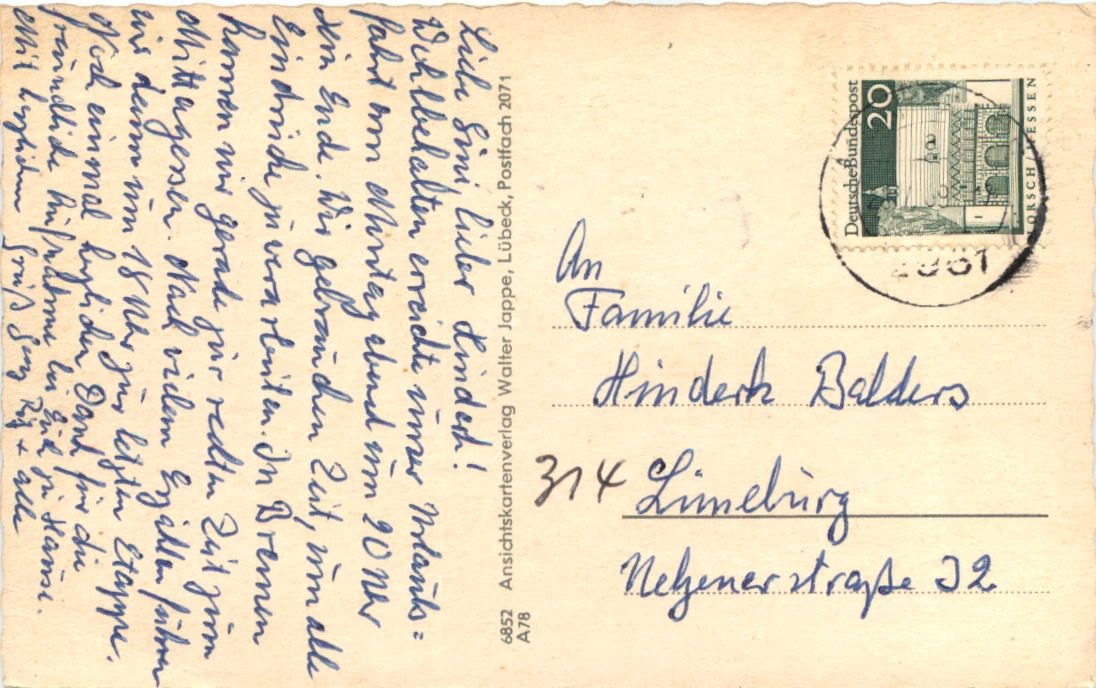 Liebe Sini, lieber Hinderk!
Wohlbehalten erreichte unser Urlaubs=
fahrt am Montag abend um 20 Uhr
ein Ende. Wir gebrauchen Zeit, um alle
Eindrücke zu verarbeiten. In Bremen
kamen wir gerade zur rechten Zeit zum
Mittagessen. Nach vielem Erzählen fuhren
wir dann um 18 Uhr zur letzten Etappe.
Noch einmal herzlichen Dank für die
freundliche Aufnahme bei Euch zu Hause.
Mit herzlichem Gruß + alle
6852 Ansichtskartenverlag Walter Jappe, Lübeck, Postfach 2071
A78
Deutsche Bundespost
20
LORSCH/HESSEN
2961
An
Familie
Hinderk Balders
314 Lüneburg
Netzenerstraße 32